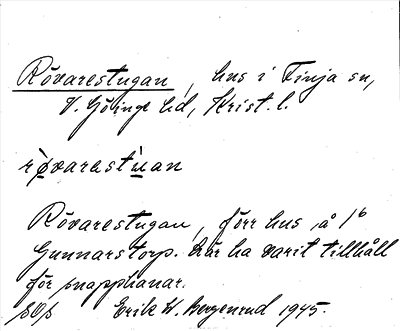 Rövarestugan, hus i Finja sn,
V. Göinge hd, Krist. l.
rø̀varestùan
Rövarestugan, förr hus å 1⁶
Gunnarstorp. Där ha varit tillhåll
för snapphanar.
Erik W. Bergenrud 1945.